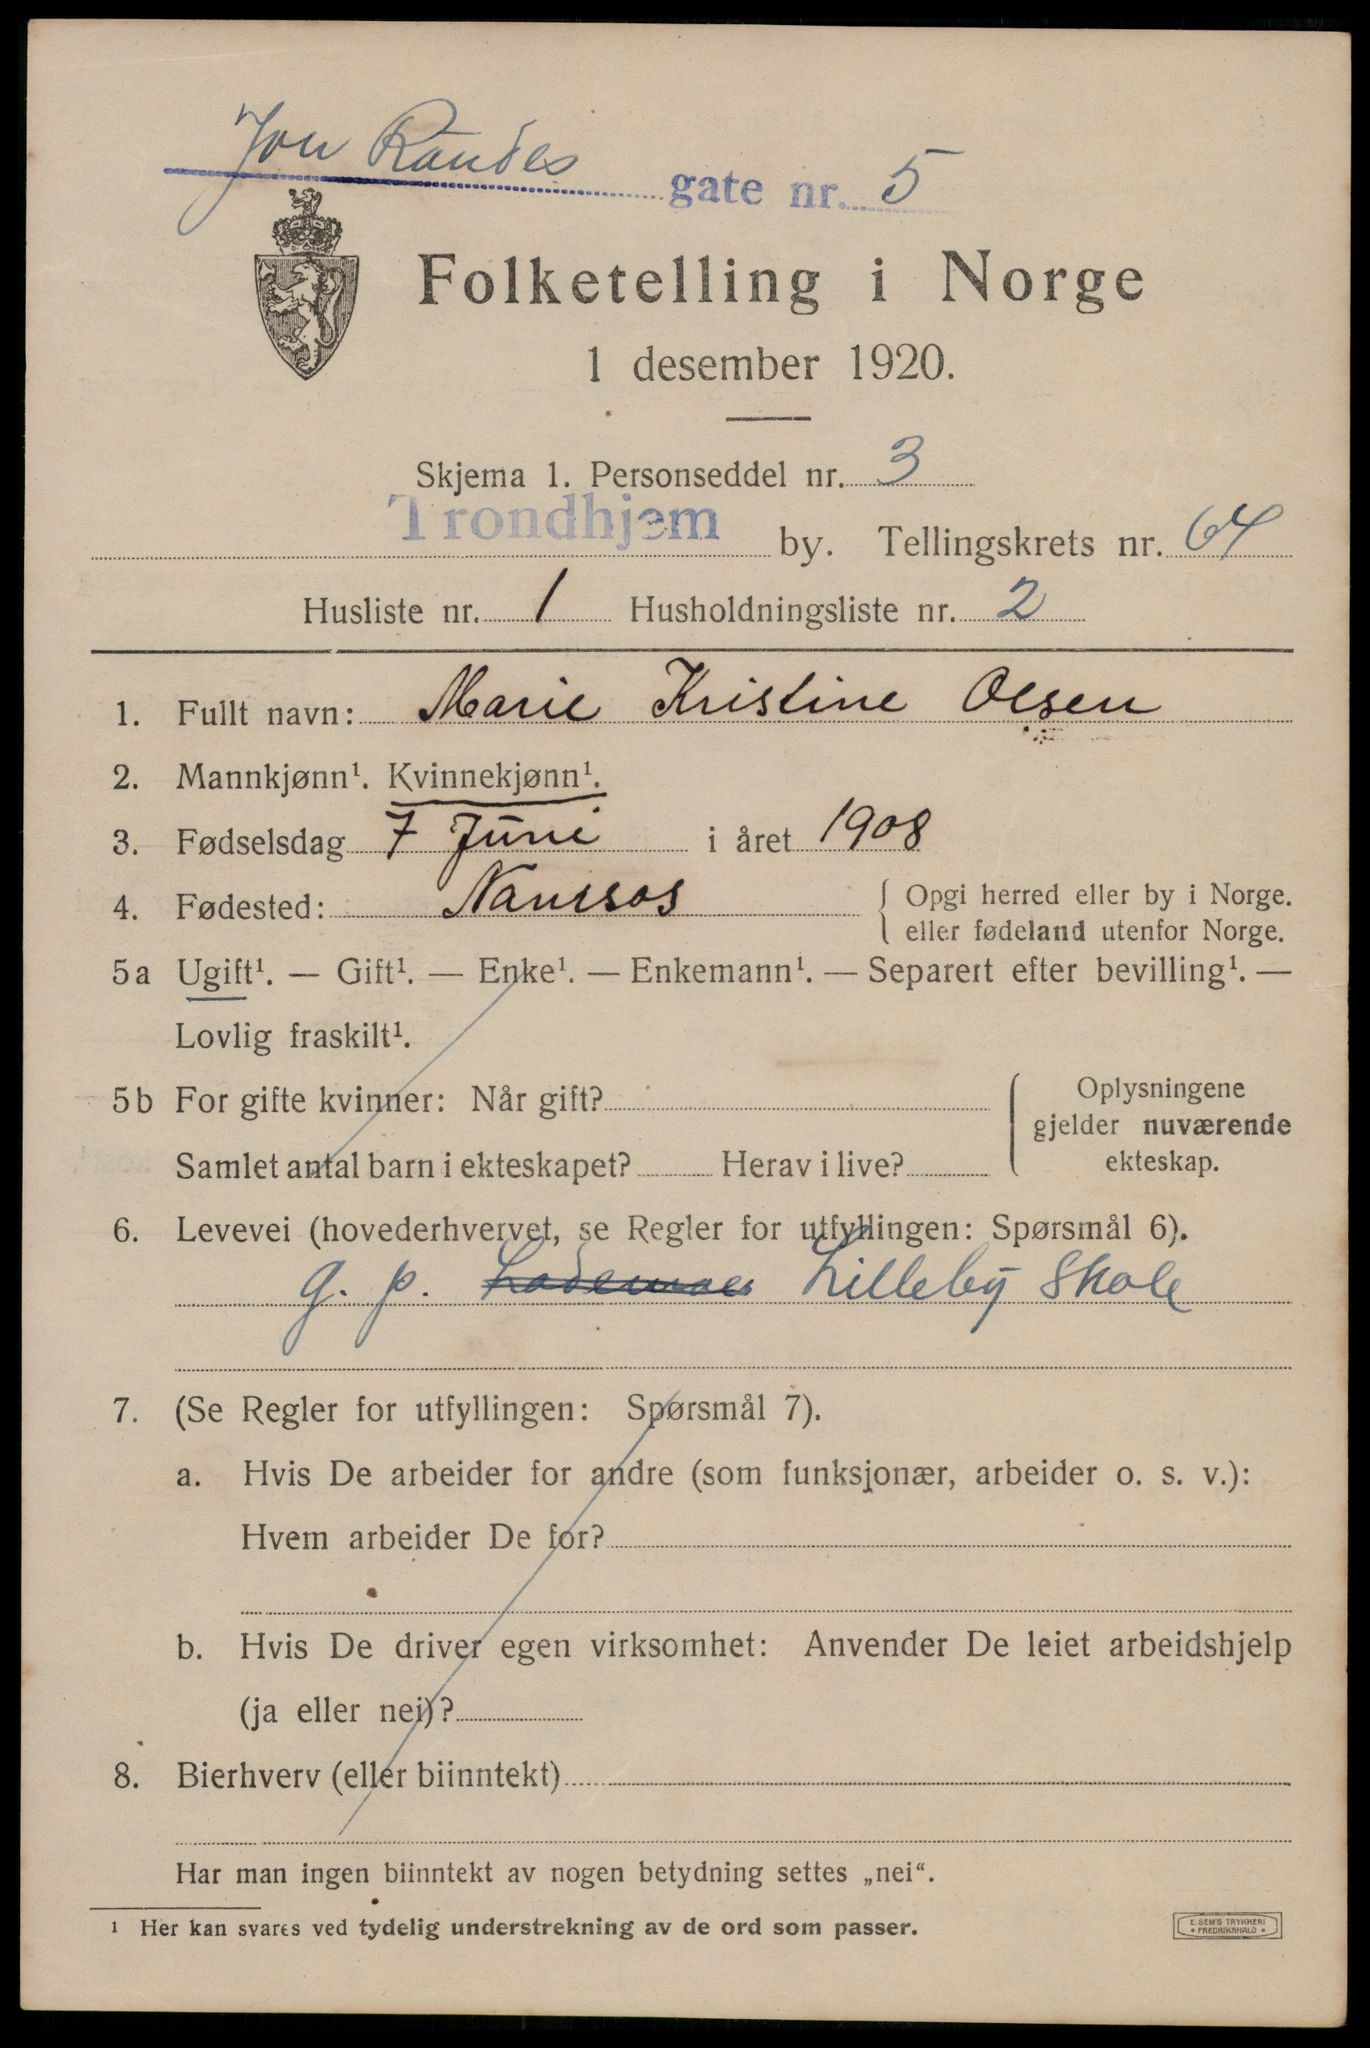 Jon Raudes gate nr. 5
Folketelling i Norge
1 desember 1920.
Skjema 1. Personseddel nr. 3
Trondhjem by. Tellingskrets nr. 64
Husliste nr. 1 Husholdningsliste nr. 2
1. Fullt navn: Marie Kristine Olsen
2. Mannkjønn¹. Kvinnekjønn¹.
3. Fødselsdag 7 Juni i året 1908
4. Fødested: Namsos { Opgi herred eller by i Norge.
eller fødeland utenfor Norge.
5a Ugift¹. — Gift¹. — Enke¹. — Enkemann¹. — Separert efter bevilling¹. —
Lovlig fraskilt¹.
5b For gifte kvinner: Når gift?
Oplysningene
gjelder nuværende
ekteskap.
Samlet antal barn i ekteskapet? Herav i live?
6. Levevei (hovederhvervet, se Regler for utfyllingen: Spørsmål 6).
g. p. Lademoen Lilleby Skole
7. (Se Regler for utfyllingen: Spørsmål 7).
a. Hvis De arbeider for andre (som funksjonær, arbeider o. s. v.):
Hvem arbeider De for?
b. Hvis De driver egen virksomhet: Anvender De leiet arbeidshjelp
(ja eller nei)?
8. Bierhverv (eller biinntekt)
Har man ingen biinntekt av nogen betydning settes „nei“.
¹ Her kan svares ved tydelig understrekning av de ord som passer.
E. SEM'S TRYKKERI
• FREDRIKSHALD •